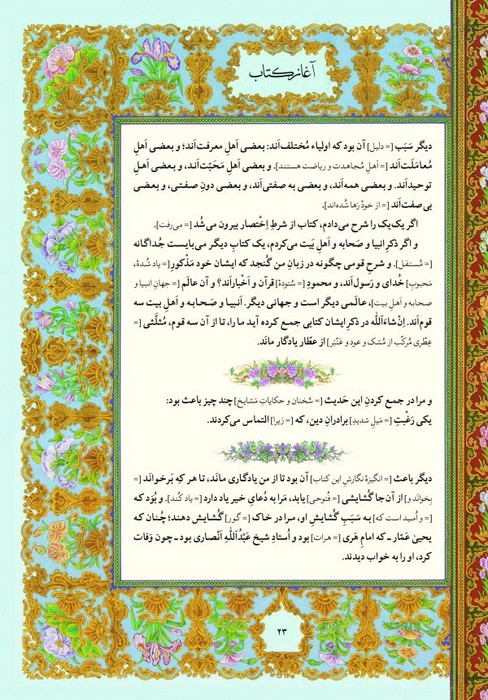 آغاز کتاب
دیگر سَبَب [= دلیل] آن بود که اولیاء مُختلف‌اَند: بعضی اَهلِ معرفت‌اَند؛ و بعضی اَهلِ
مُعامَلَت‌اَند [= اَهلِ مُجاهدت و ریاضت هستند]. و بعضی اَهلِ مَحَبّت‌اَند، و بعضی اَهلِ
توحیداَند. و بعضی همه‌اَند، و بعضی به صفتی‌اَند، و بعضی دونِ صفتی، و بعضی
بی صفت‌اَند [= از خودْ رَها شُده‌اند].
اگر یک‌یک را شرح می‌دادم، کتاب از شرطِ اِخْتِصار بیرون می‌شُد [= می‌رفت].
و اگر ذکرِ انبیا و صَحابه و اَهلِ بَیت می‌کردم، یک کتابِ دیگر می‌بایست جُداگانه
[= مُستقلّ]. و شرحِ قومی چگونه در زبانِ من گُنجد که ایشان خود مَذکورِ [= یاد شُدهٔ،
مَحبوبِ] خُدای و رَسول‌اَند، و محمودِ [= سُتودهٔ] قرآن و اَخبار‌اَند؟ و آن عالَم [= جهانِ انبیا و
صحابه و اَهلِ بیت]، عالَمی دیگر است و جهانی دیگر. اَنبیا و صَحابه و اَهلِ بیت سه
قوم‌اَند. اِنْ شاءَاَللّه در ذکرِ ایشان کتابی جمع کرده آید ما را، تا از آن سه قوم، مُثَلَّثی [=
عِطْری مُرکّب از مُشک و عود و عَنْبَر] از عطّار یادگار مانَد.
و مرا در جمع کردنِ این حَدیث [= سُخنان و حکایاتِ مَشایخ] چند چیز باعث بود:
یکی رَغْبتِ [= مَیلِ شدیدِ] برادرانِ دین، که [= زیرا] التماس می‌کردند.
دیگر باعث [= انگیزهٔ نگارشِ این کتاب] آن بود تا از من یادگاری مانَد، تا هر که بَرخوانَد [=
بِخوانَد و] از آن جا گُشایشی [= فُتوحی] یابد، مَرا به دُعایِ خیر یاد دارد [= یاد کُند]. و بُوَد که
[= و اُمید است که] به سَبَبِ گُشایشِ او، مرا در خاک [= گور] گُشایش دهند؛ چُنان که
یحییٰ عَمّار ـ که امامِ هَری [= هرات] بود و اُستادِ شیخ عَبْدُاللّهِ اَنْصاری بود ـ چون وَفات
کرد، او را به خواب دیدند.
۲۳